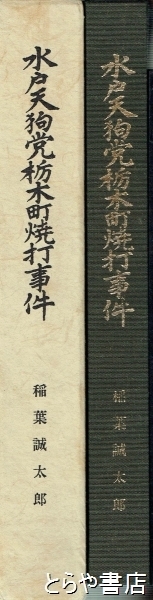 水戸天狗党栃木町焼打事件
稲葉誠太郎
水戸天狗党栃木町焼打事件
稲葉誠太郎
とらや書店